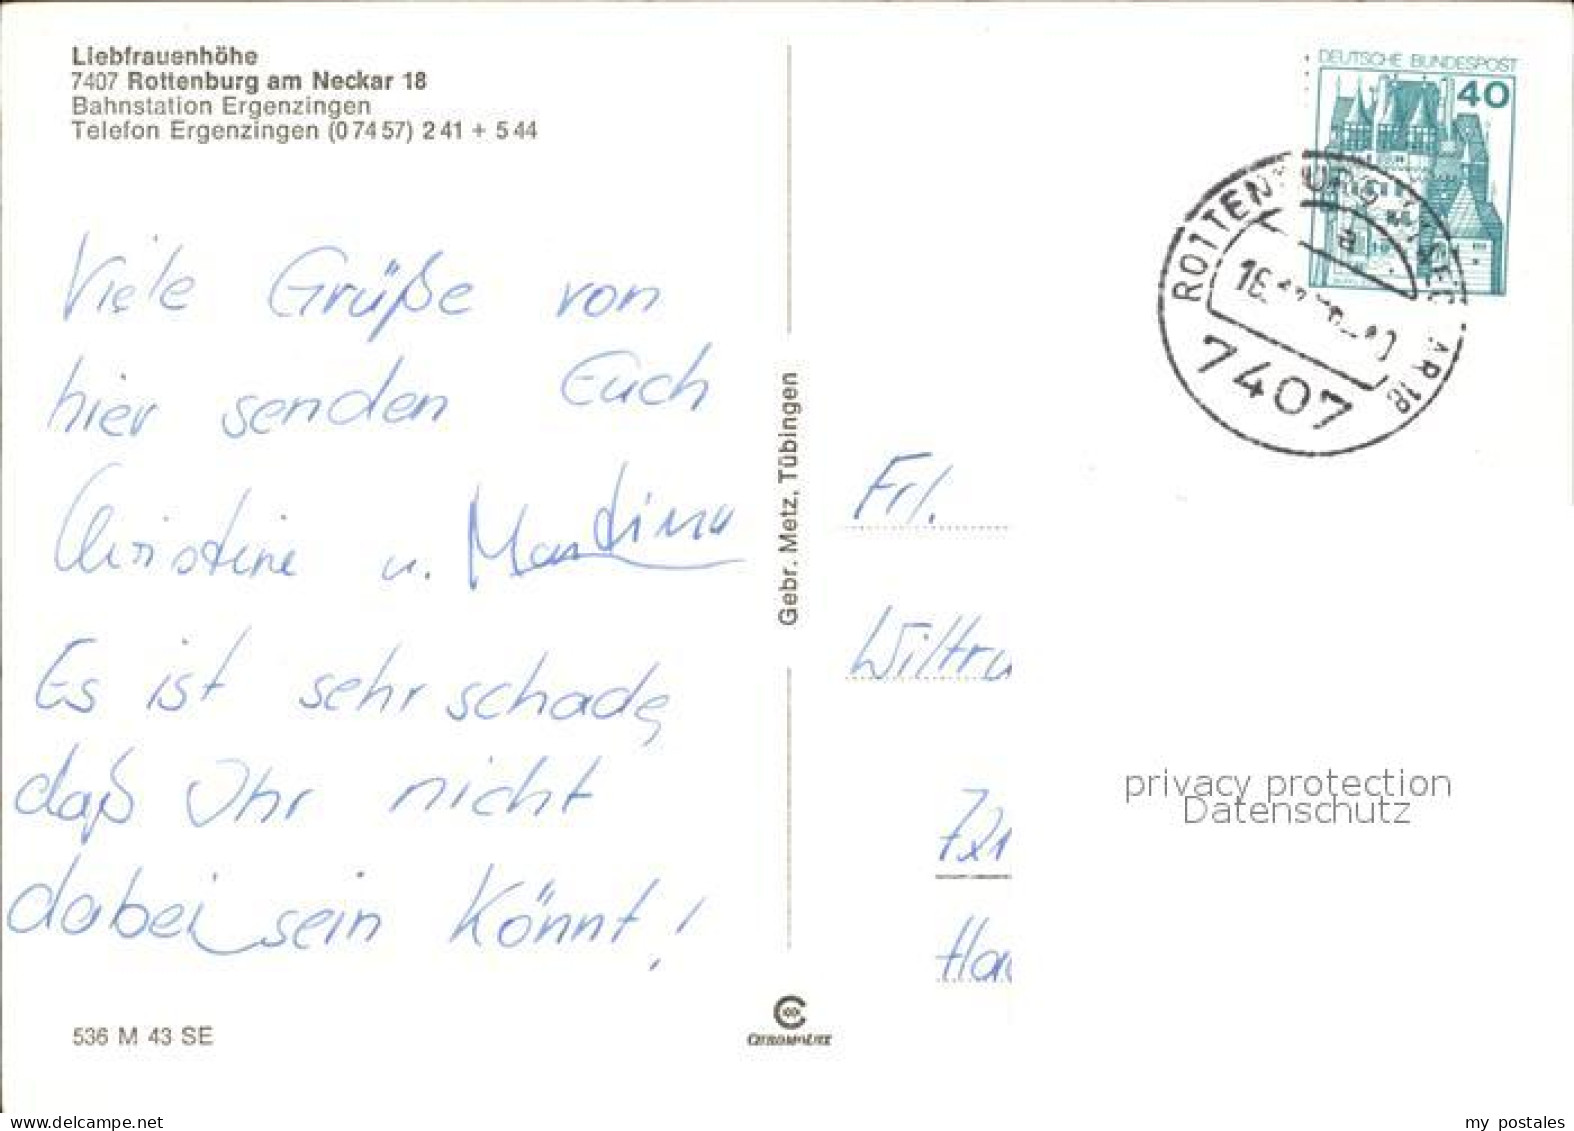 Liebfrauenhöhe
7407 Rottenburg am Neckar 18
Bahnstation Ergenzingen
Telefon Ergenzingen (0 74 57) 2 41 + 5 44
Viele Grüße von
hier senden Euch
Christine u. Martina
Es ist sehr schade,
daß Ihr nicht
dabei sein könnt!
536 M 43 SE
Gebr. Metz, Tübingen
CHROMOLUX
DEUTSCHE BUNDESPOST
40
ROTTENBURG
AR 18
7407
Frl.
Wiltru
721
privacy protection
Datenschutz
my postales